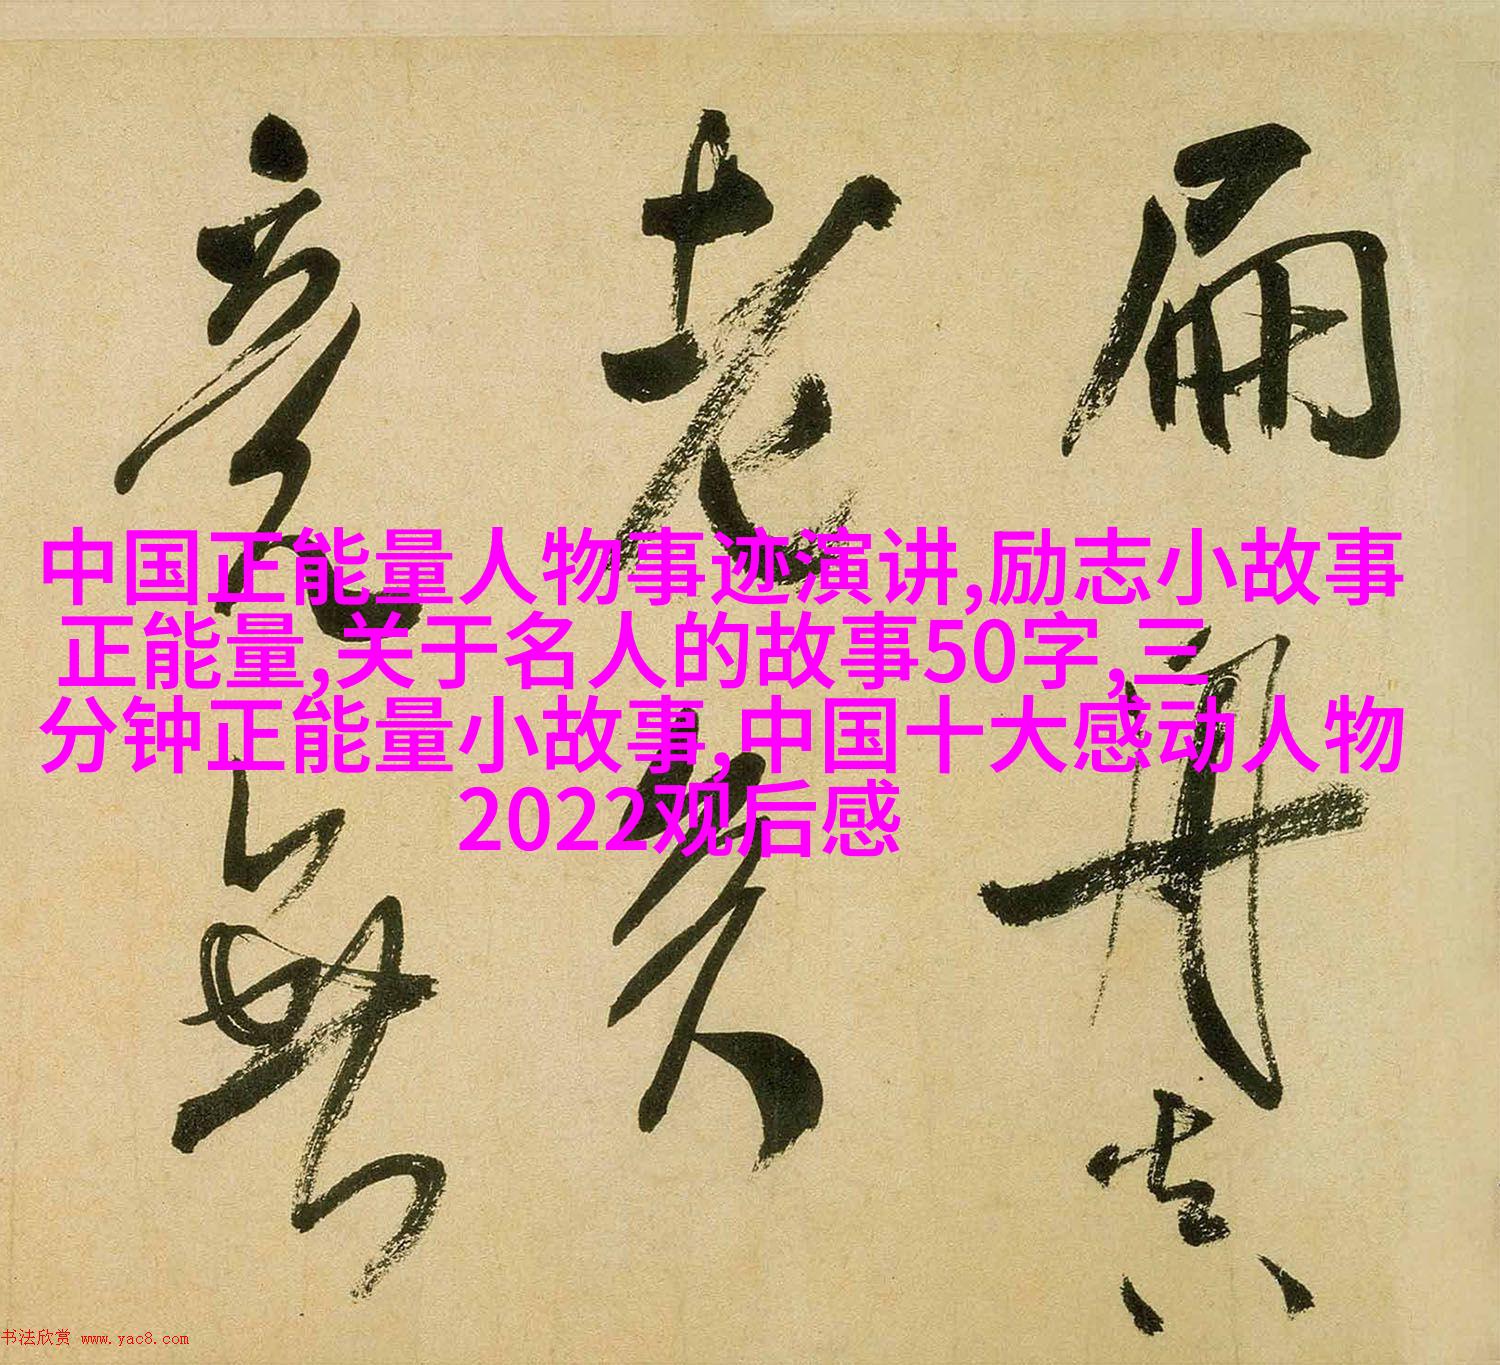 扁舟
老矣
無
中国正能量人物事迹演讲,励志小故事
正能量,关于名人的故事50字,三
分钟正能量小故事,中国十大感动人物
2022观后感
书法欣赏 www.yac8.com